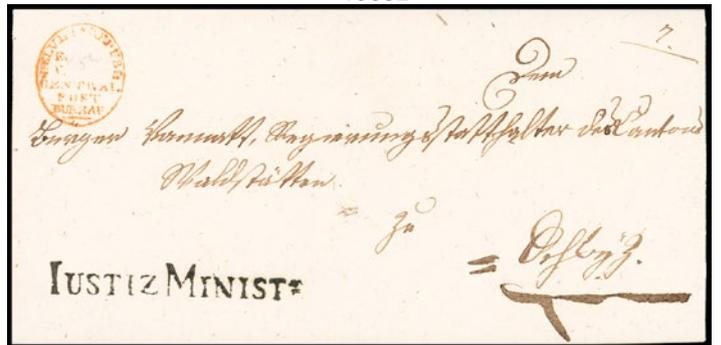 7.
HELVET. REPUBLIK
CENTRAL
POST
BUREAU
Dem
Burger Vonmatt, Regierungsstatthalter des Cantons
Waldstätten
= zu
= Schwyz.
IUSTIZ MINIST=